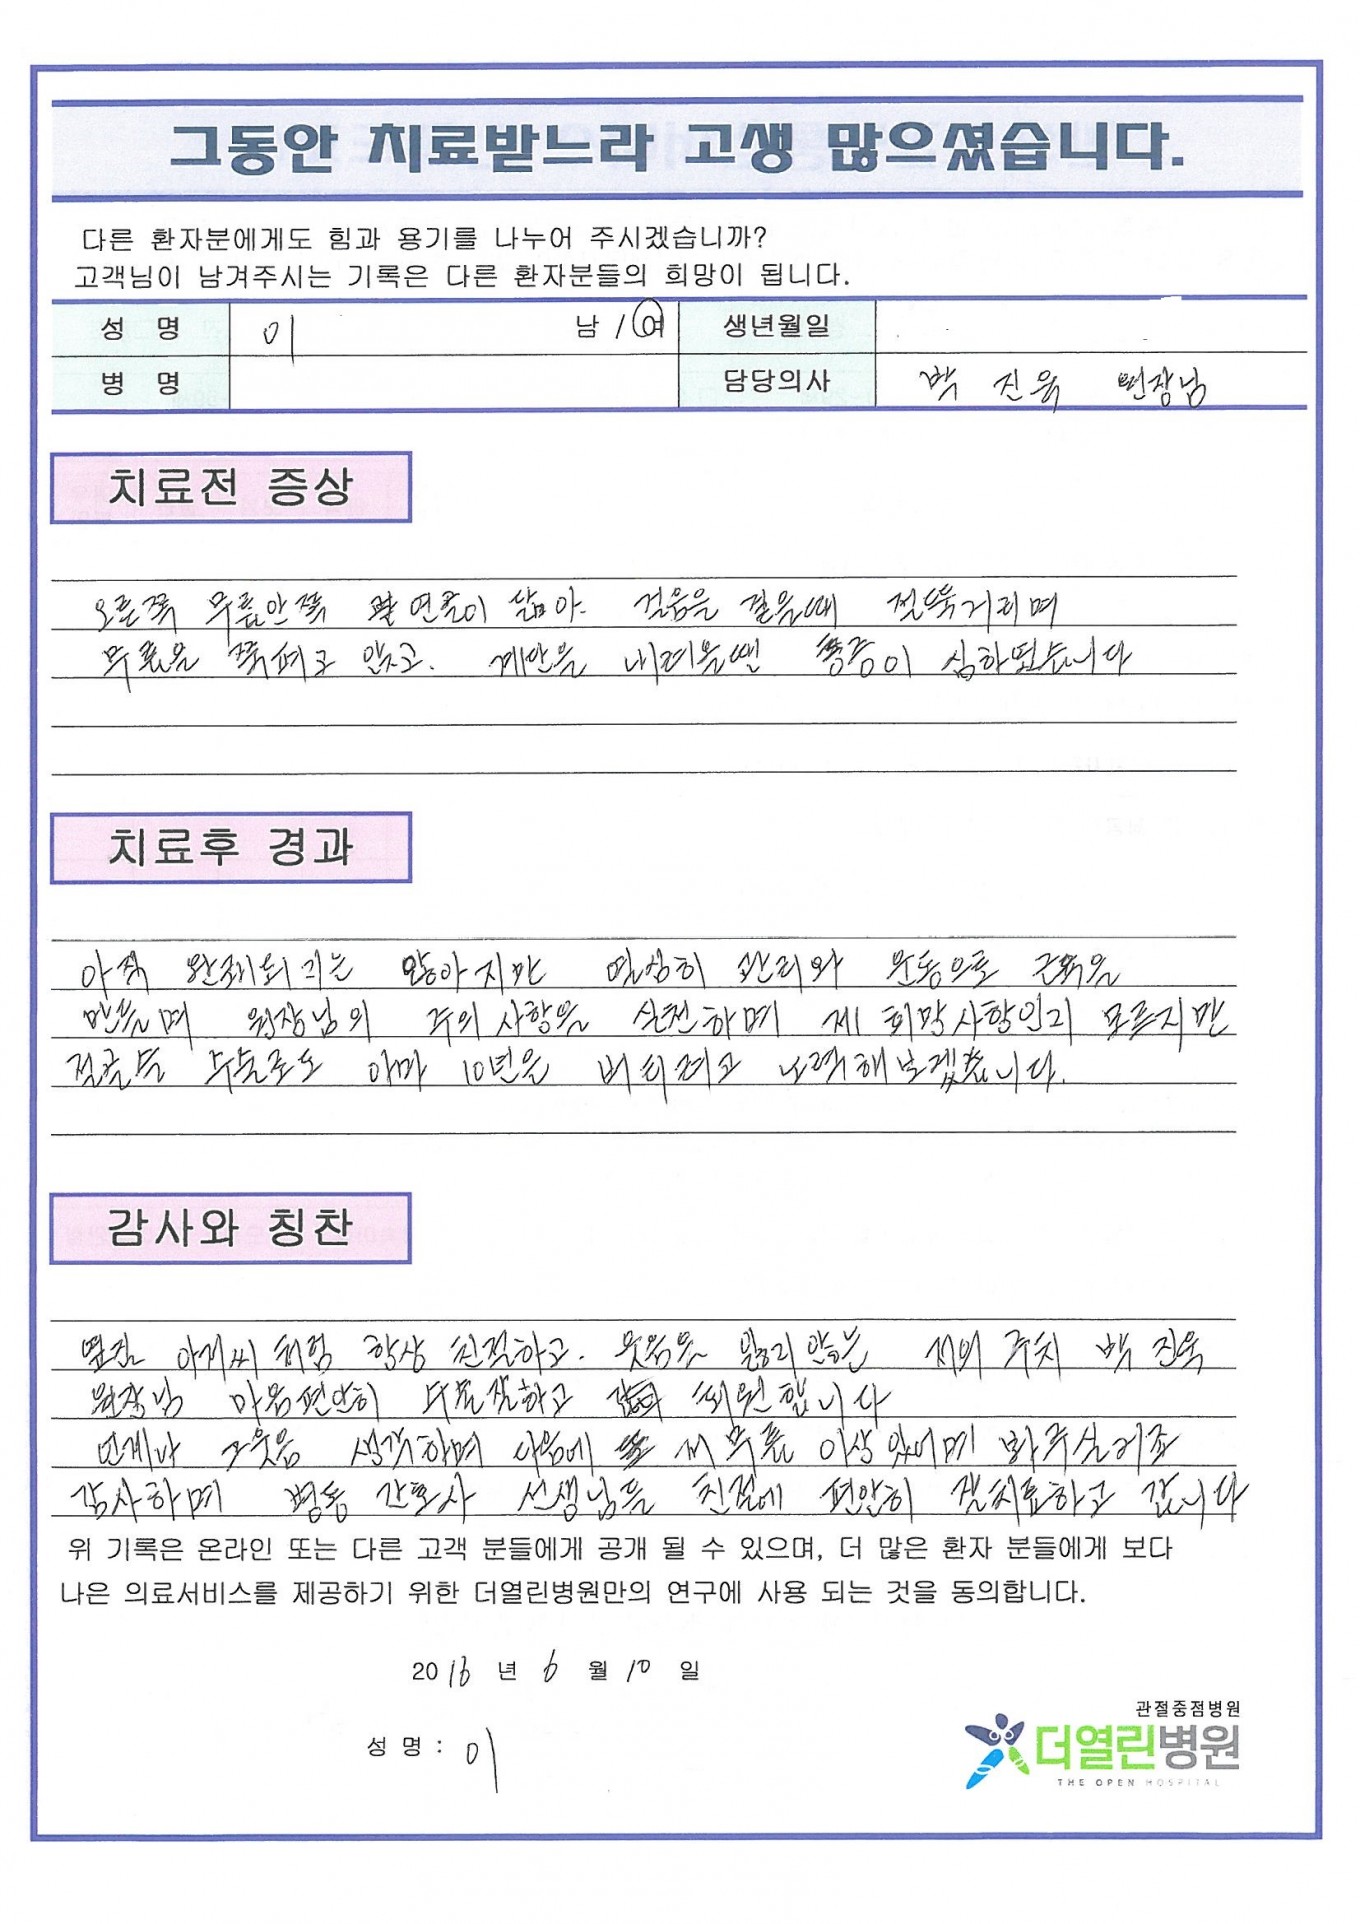 그동안 치료받느라 고생 많으셨습니다.
다른 환자분에게도 힘과 용기를 나누어 주시겠습니까?
고객님이 남겨주시는 기록은 다른 환자분들의 희망이 됩니다.
성 명 이 남 / 여 생년월일
병 명 담당의사 박 진욱 원장님
치료전 증상
오른쪽 무릎안쪽 연골이 닳아. 걸음을 걸을때 절뚝거리며
무릎을 쭉펴고 앉고. 계단을 내려올땐 통증이 심하였습니다
치료후 경과
아직 완쾌되지는 않아지만 열심히 관리와 운동으로 근육을
만들며 원장님의 주의사항을 실천하며 제 희망사항인지 모르지만
절골등 수술로도 아마 10년을 버티려고 노력해보겠습니다.
감사와 칭찬
옆집 아저씨처럼 항상 친절하고. 웃음을 잃지않는 저의 주치 박 진욱
원장님 마음편안히 수술잘하고 퇴원합니다
언제나 그웃음 생각하며 다음에 무릎 이상있어며 봐주실거죠
감사하며 병동 간호사 선생님들 친절에 편안히 잘치료하고 갑니다
위 기록은 온라인 또는 다른 고객 분들에게 공개 될 수 있으며, 더 많은 환자 분들에게 보다
나은 의료서비스를 제공하기 위한 더열린병원만의 연구에 사용 되는 것을 동의합니다.
2016 년 6 월 10 일
관절중점병원
더열린병원
THE OPEN HOSPITAL
성 명 : 이